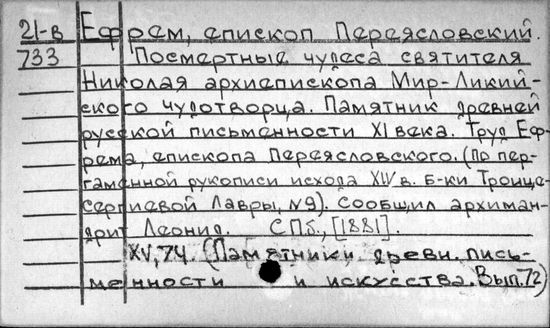 21-в Ефрем, епископ Переяславский.
733 Посмертные чудеса святителя
Николая архиепископа Мир-Ликий-
ского чудотворца. Памятник древней
русской письменности XI века. Труд Еф-
рема, епископа Переяславского. (По пер-
гаменной рукописи исхода XIV в. б-ки Троице-
Сергиевой Лавры, №9). Сообщил архиман-
дрит Леонид. СПб., [1881].
XV, 74. (Памятники древн. пись-
менности и искусства. Вып. 72)